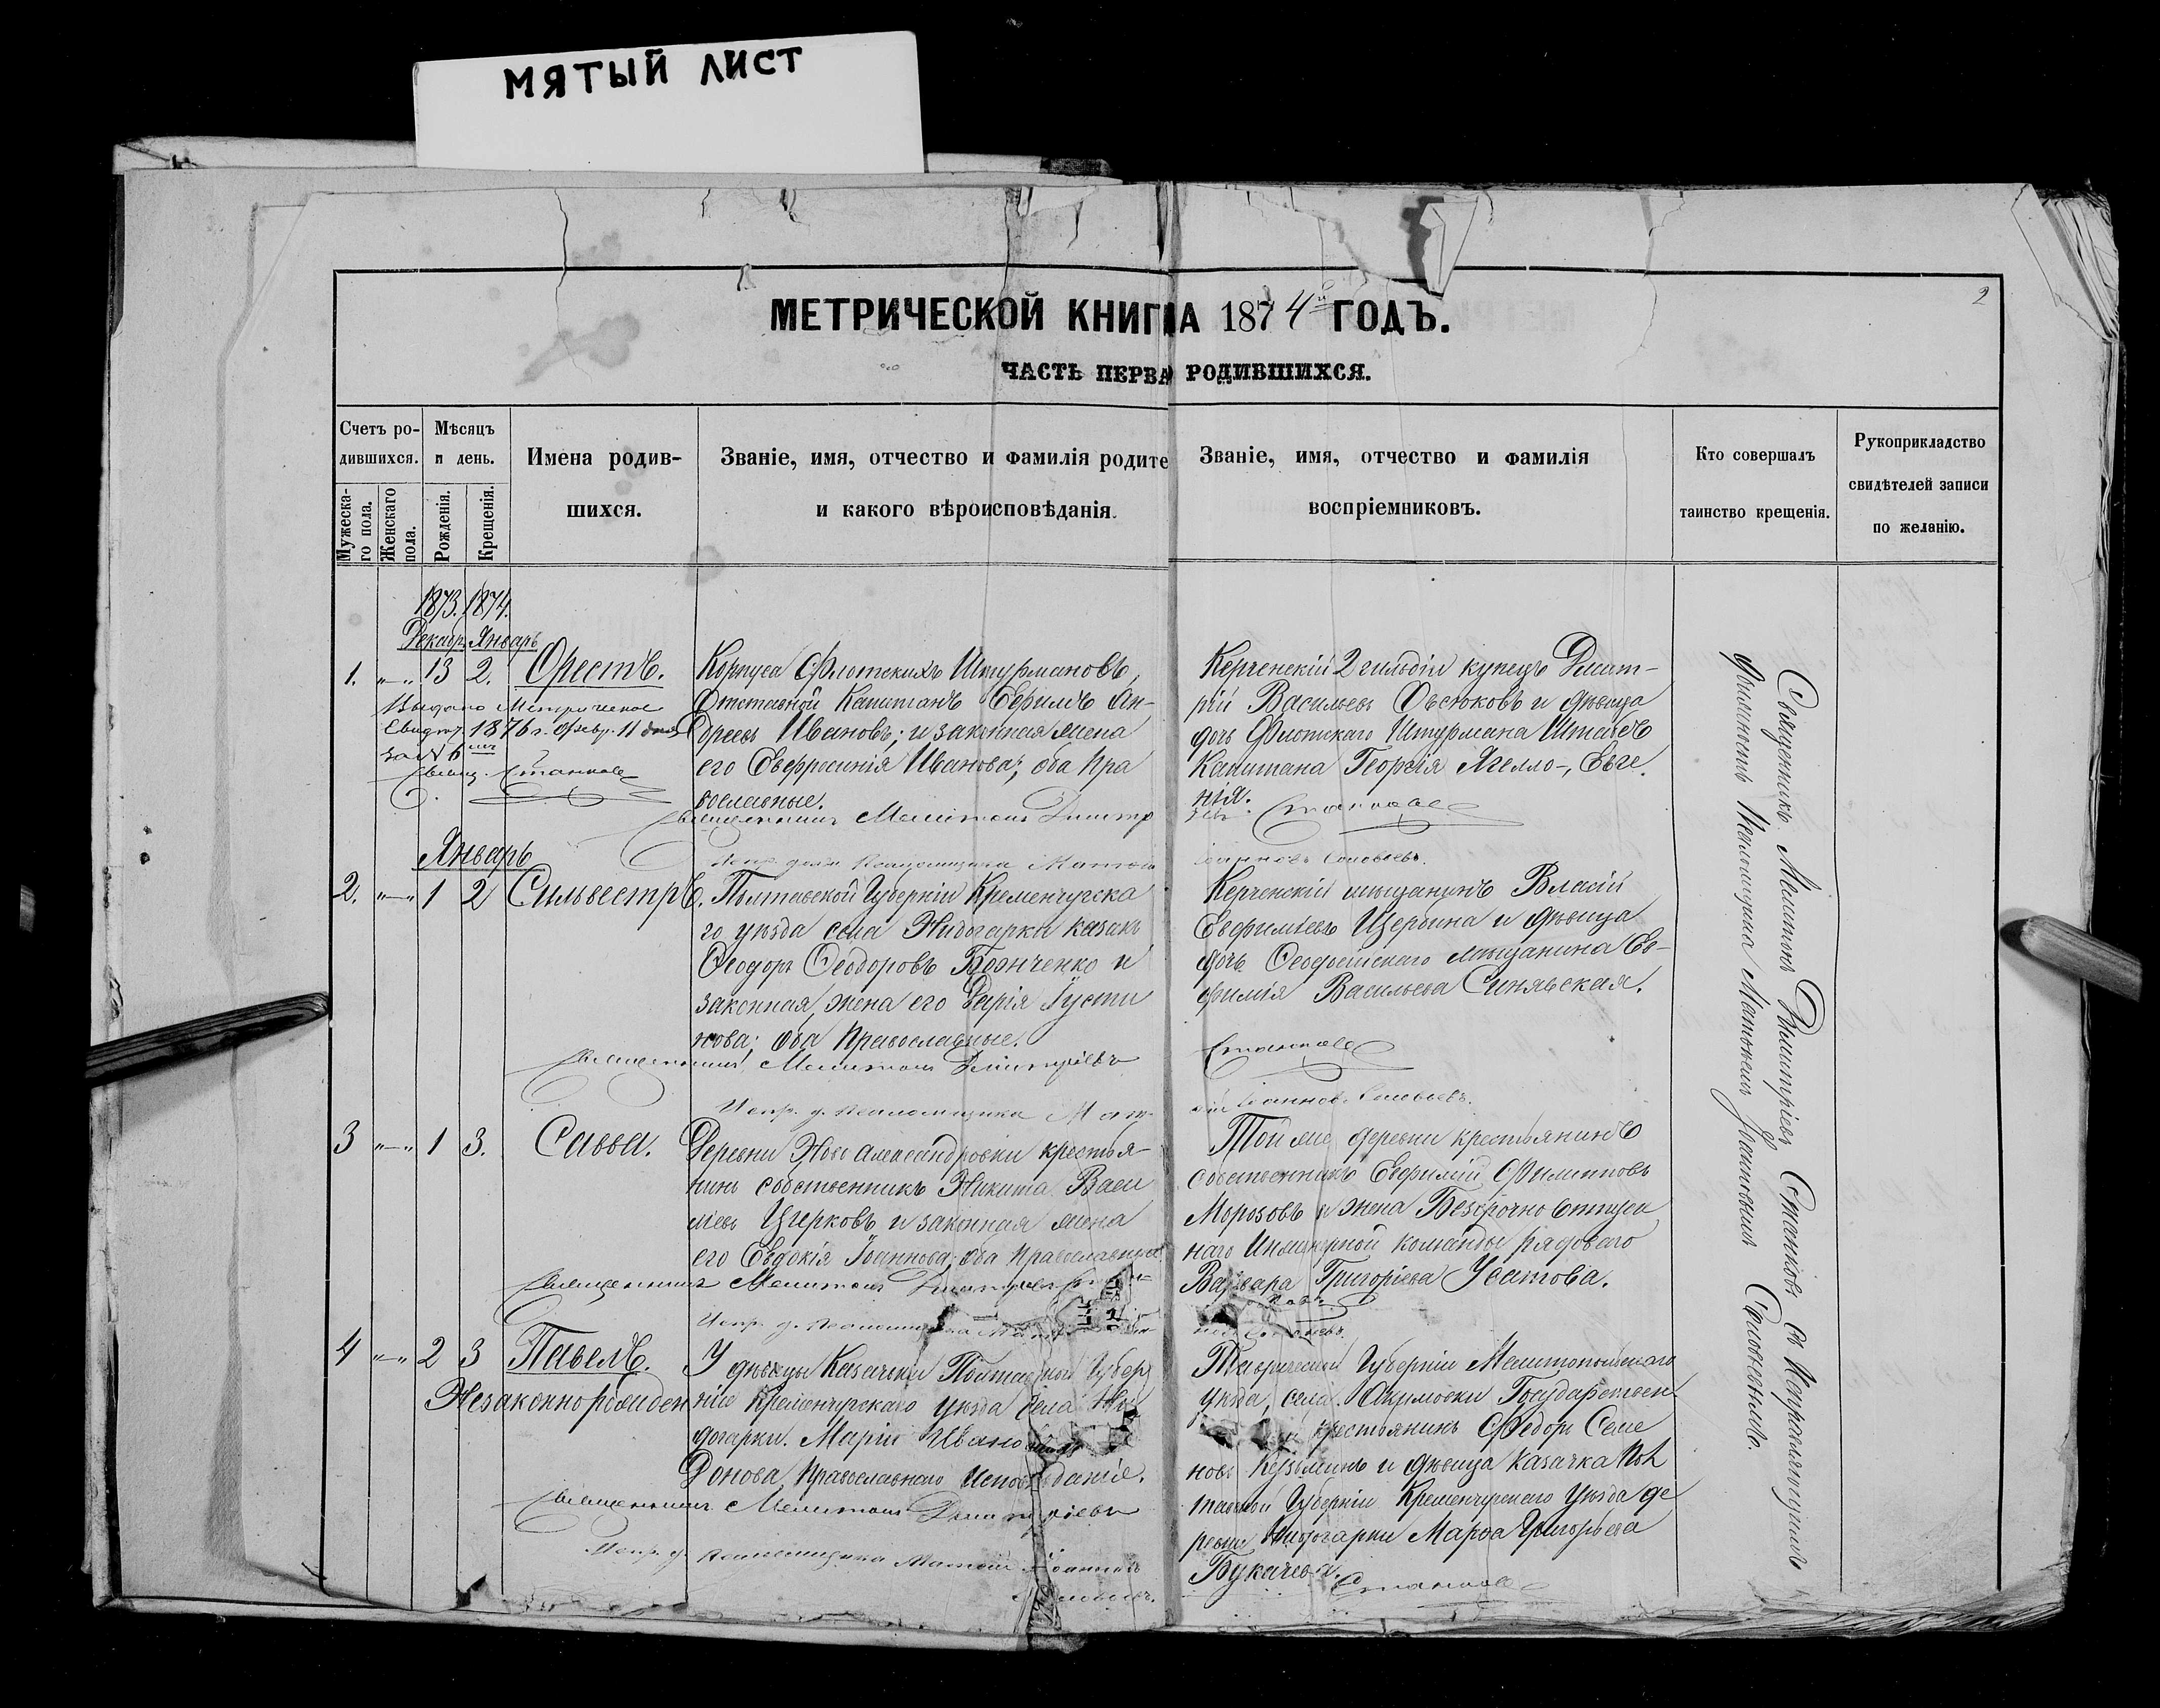 МЯТЫЙ ЛИСТ
2
МЕТРИЧЕСКОЙ КНИГИ НА 1874й ГОДЪ.
ЧАСТЬ ПЕРВА РОДИВШИХСЯ.
Счетъ ро-
дившихся.
Мужеска-
го пола.
Женскаго
пола.
Мѣсяцъ
и день.
Рожденія.
Крещенія.
Имена родив-
шихся.
Званіе, имя, отчество и фамилія родите
и какого вѣроисповѣданія.
Званіе, имя, отчество и фамилія
воспріемниковъ.
Кто совершалъ
таинство крещенія.
Рукоприкладство
свидѣтелей записи
по желанію.
1873. 1874.
Декабр. Январь
1. „—„ 13 2. Орестъ.
Выдано Метрическое
Свидѣт. 1876 г. Февр. 11 дня
за № 6
Свящ. Станковъ
Корпуса Флотскихъ Штурмановъ,
Отставной Капитанъ Ефимъ Ан-
дреевъ Ивановъ; и законная жена
его Евфросинія Иванова; оба Пра
вославные.
Священникъ Мелитонъ Димитр
Испр. долж. Псаломщика Матѳей
Керченскій 2 гильдіи купецъ Димит-
рій Васильевъ Овсюковъ и дѣвица
дочь Флотскаго Штурмана Штабсъ
Капитана Георгія Ягелло-, Евге
нія.
Станковъ
Іоанновъ Соловьевъ.
Январь
2. „—„ 1 2 Сильвестръ.
Полтавской Губерніи Кременчугска
го уѣзда села Нидогарки казакъ
Ѳеодоръ Ѳеодоровъ Боэнченко и
законная жена его Дарія Іусти
нова; оба Православные.
Священникъ Мелитонъ Димитріевъ
Испр. д. Псаломщика Мат-
Керченскій мѣщанинъ Власій
Евфиміевъ Щербина и дѣвица
дочь Ѳеодосійскаго мѣщанина Ев-
фимія Васильева Синявская.
Станковъ
Іоанновъ Соловьевъ.
3 „—„ 1 3. Савва.
Деревни Ново Александровки крестья-
нинъ собственникъ Никита Васи
льевъ Цѣерковъ и законная жена
его Евдокія Іоаннова; оба Православные
Священникъ Мелитонъ Димитріевъ
Испр. д. Псаломщика
Той же деревни крестьянинъ
собственникъ Евфимій Филиповъ
Морозовъ и жена Безсрочно отпуск
наго Инженерной команды рядоваго
Варвара Григоріева Усатова.
4 „—„ 2 3 Павелъ.
Незаконнорожден
У дѣвицы Казачьки Полтавской Губер
ніи Кременчугскаго уѣзда села Ни
догарки. Маріи
Донова, Православнаго Исповѣданіе.
Священникъ Мелитонъ Димитріевъ
Испр. д. Псаломщика Матѳей Іоанновъ
Таврической Губерніи Мелитопольскаго
уѣзда, села Акимовки Государствен
крестьянинъ Федоръ Семе
новъ Кузьминъ и дѣвица казачка Пол
тавской Губерніи Кременчугскаго уѣзда де
ревни Нидогарки Марѳа Григорьева
Букачева.
Станковъ
Священникъ Мелитонъ Димитріевъ Станковъ съ Исправляющимъ
должность Псаломщика Матѳеемъ Іоанновымъ Соловьевымъ.